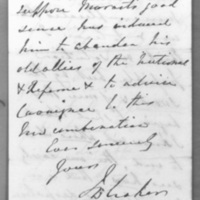 suppose Marrast's good
sense has induced
him to abandon his
old allies of the National
& Reforme & to advise
Cavaignac to this
new combination
Ever sincerely
Yours